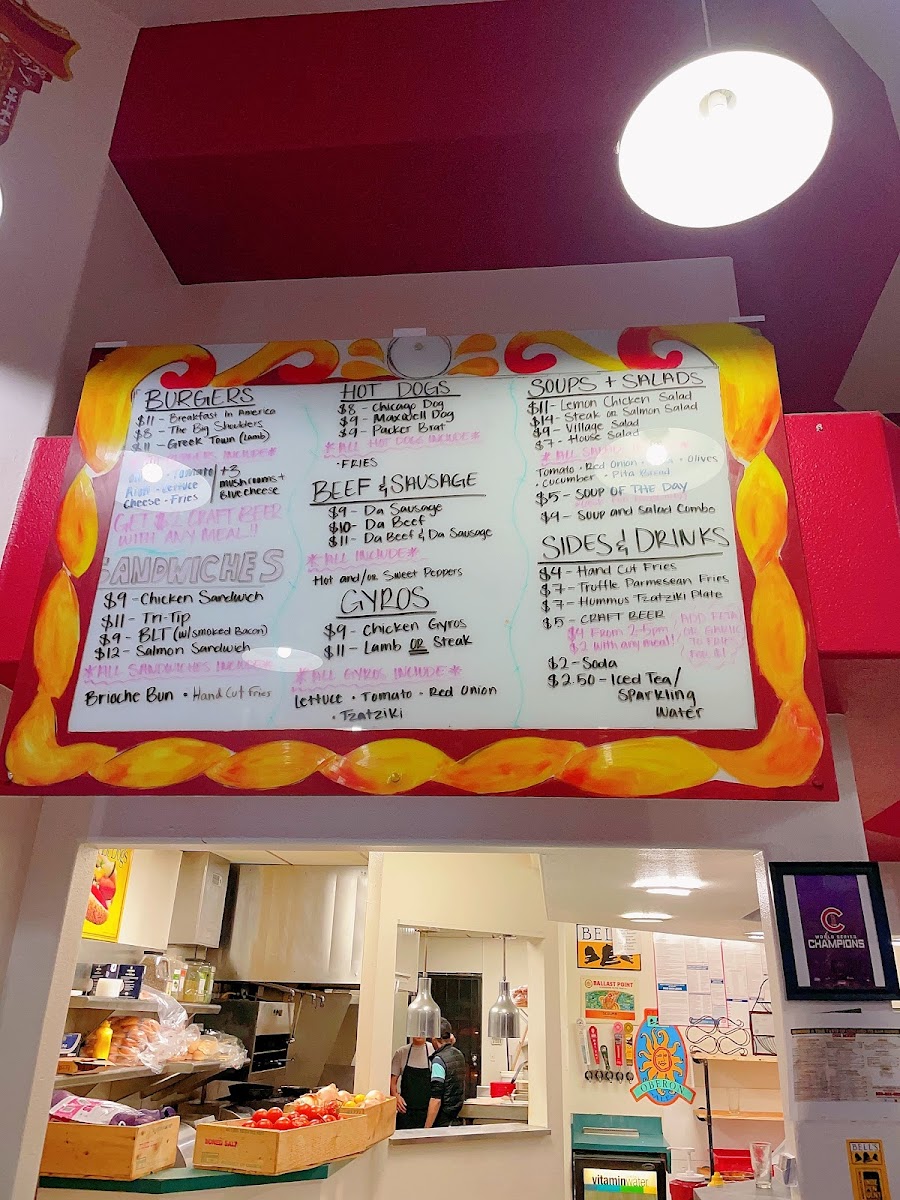 BURGERS
$11 - Breakfast In America
$8 - The Big Shoulders
$11 - Greek Town (Lamb)
INCLUDE*
Tomato
Lettuce
Cheese · Fries
+3
mushrooms +
Blue cheese
GET $2 CRAFT BEER
WITH ANY MEAL!!
SANDWICHES
$9 - Chicken Sandwich
$11 - Tri-Tip
$9 - BLT (w/smoked Bacon)
$12 - Salmon Sandwich
*ALL SANDWICHES INCLUDE*
Brioche Bun · Hand Cut Fries
HOT DOGS
$8 - Chicago Dog
$9 - Maxwell Dog
$9 - Packer Brat
*ALL HOT DOGS INCLUDE*
·FRIES
BEEF & SAUSAGE
$9 - Da Sausage
$10 - Da Beef
$11 - Da Beef & Da Sausage
*ALL INCLUDE*
Hot and/or Sweet Peppers
GYROS
$9 - Chicken Gyros
$11 - Lamb OR Steak
*ALL GYROS INCLUDE*
Lettuce · Tomato · Red Onion
· Tzatziki
SOUPS + SALADS
$11 - Lemon Chicken Salad
$14 - Steak or Salmon Salad
$9 - Village Salad
$7 - House Salad
*ALL
Tomato · Red Onion · Olives
· cucumber · Pita Bread
$5 - SOUP OF THE DAY
$9 - Soup and Salad Combo
SIDES & DRINKS
$4 - Hand Cut Fries
$7 - Truffle Parmesean Fries
$7 - Hummus Tzatziki Plate
$5 - CRAFT BEER
$4 From 2-5pm
$2 with any meal!
ADD FETA
OR GARLIC
TO FRIES
FOR $1
$2 - Soda
$2.50 - Iced Tea/
Sparkling
Water
C
WORLD SERIES
CHAMPIONS
BELL'S
BALLAST POINT
OBERON
ALE
vitaminwater
BELL'S